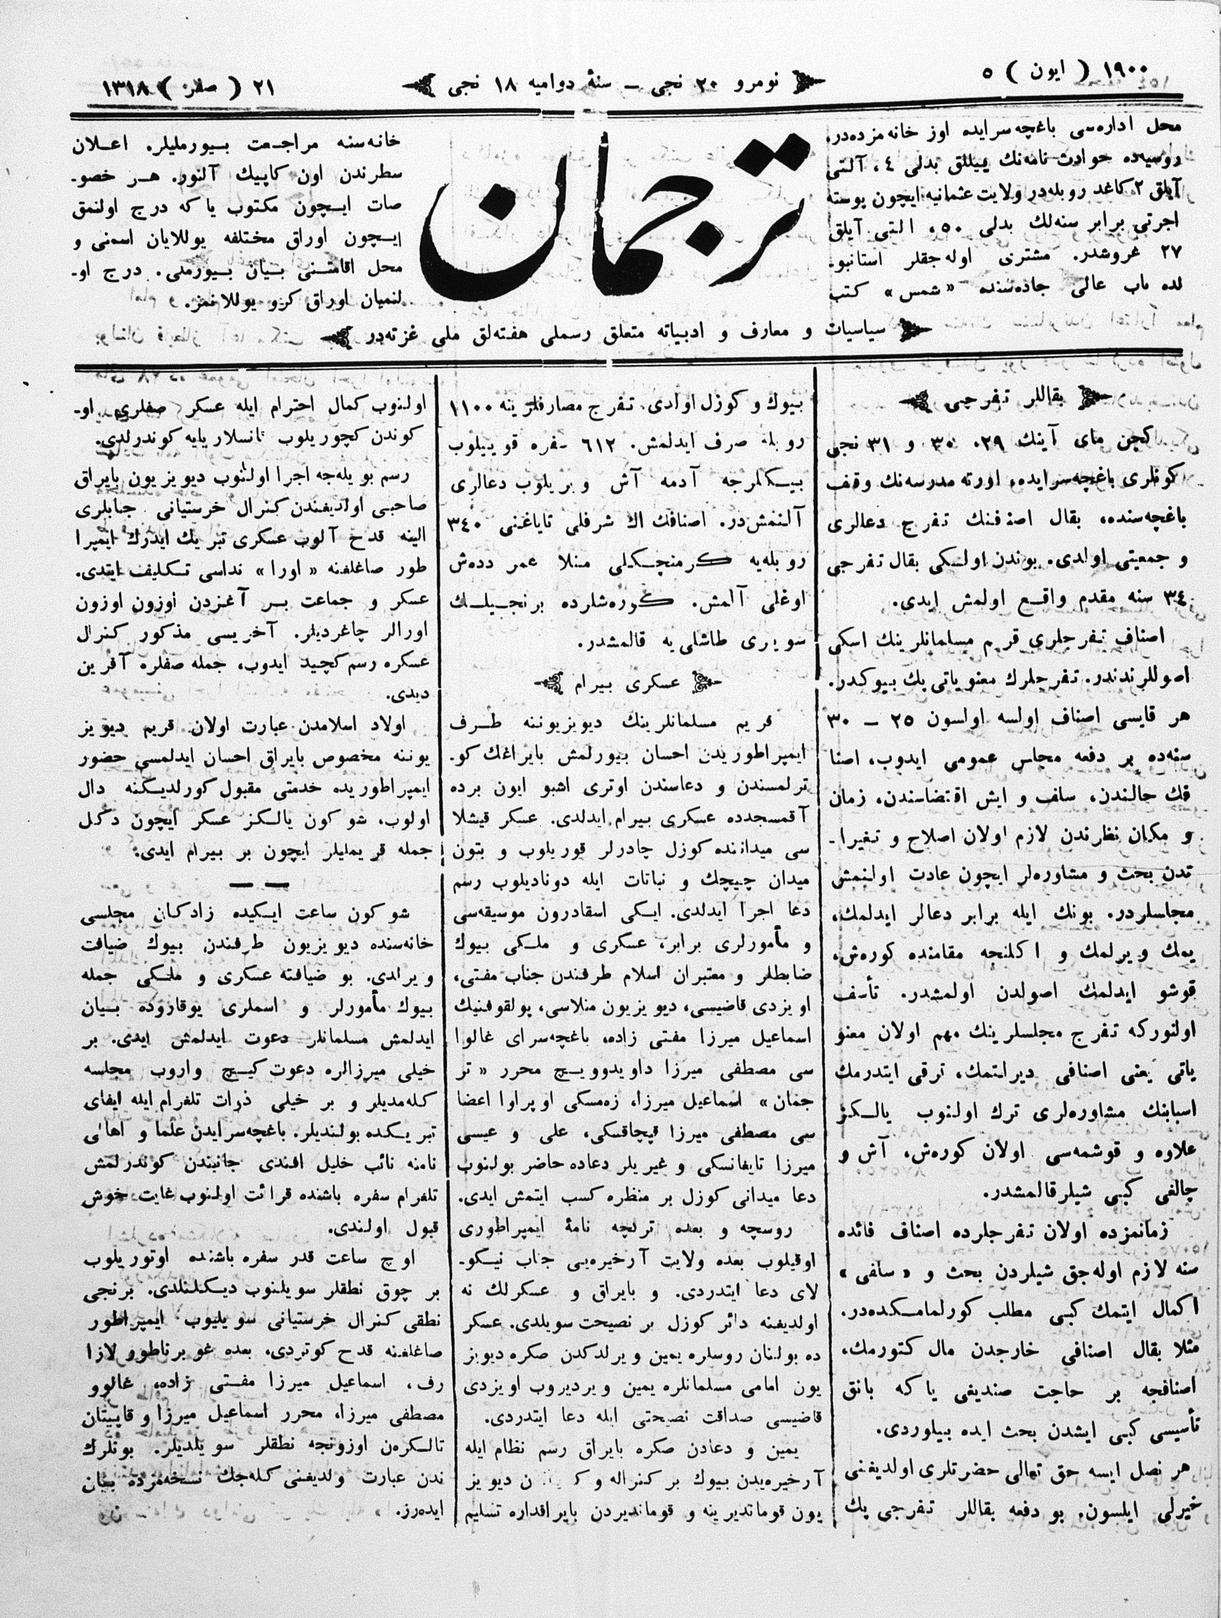 ١٩٠٠ ( ايون ) ٥
نومرو ٢٠ نجی — سنۀ دواميه ١٨ نجی
٢١ ( صفر ) ١٣١٨
محل اداره‌سی باغچه‌سرايده اوز خانه‌مزده‌در.
روسيه‌ده حوادث نامه‌نك ييللق بدلی ٤، آلتی
آيلق ٢ كاغد روبله‌در ولايت عثمانيه ايچون پوسته
اجرتی برابر سنه‌لك بدلی ٥٠، التی آيلق
٢٧ غروشدر. مشتری اوله‌جقلر استانبو-
لده باب عالی جاده‌سنده «شمس» كتب
ترجمان
خانه‌سنه مراجعت بيورمليلر. اعلان
سطرندن اون كاپيك آلنور. هر خصو-
صات ايچون مكتوب ياكه درج اولنمق
ايچون اوراق مختلفه يوللايان اسمنی و
محل اقامتنی بيان بيورملی. درج او-
لنميان اوراق كرو يوللانمز.
سياسيات و معارف و ادبياته متعلق رسملی هفته‌لق ملی غزته‌در
بقاللر تفرجی
كچن مای آينك ٢٩، ٣٠ و ٣١ نجی
كونلری باغچه‌سرايده، اورته مدرسه‌نك وقف
باغچه‌سنده، بقال اصنفنك تفرج دعالری
و جمعيتی اولدی. بوندن اولكی بقال تفرجی
٣٤ سنه مقدم واقع اولمش ايدی.
اصناف تفرجلری قريم مسلمانلرينك اسكی
اصوللرندندر. تفرجلرك معنوياتی پك بيوكدر.
هر قايسی اصناف اولسه اولسون ٢٥ — ٣٠
سنه‌ده بر دفعه مجلس عمومی ايدوب، اصنا
فك حالندن، سلف و ايش اقتضاسندن، زمان
و مكان نظرندن لازم اولان اصلاح و تغيرا-
تدن بحث و مشاوره‌لر ايچون عادت اولنمش
مجلسلردر. بونك ايله برابر دعالر ايدلمك،
يمك ويرلمك و اكلنجه مقامنده كوره‌ش،
قوشو ايدلمك اصولدن اولمشدر. تأسف
اولنوركه تفرج مجلسلرينك مهم اولان معنو
ياتی يعنی اصنافی ديرلتمك، ترقی ايتدرمك
اسبابنك مشاوره‌لری ترك اولنوب يالكز
علاوه و قوشمه‌سی اولان كوره‌ش، آش و
چالغی كبی شيلر قالمشدر.
زمانمزده اولان تفرجلرده اصناف فائده
سنه لازم اوله‌جق شيلردن بحث و «سلفی»
اكمال ايتمك كبی مطلب كورلمامكده‌در.
مثلا بقال اصنافی خارجدن مال كتورمك،
اصنافجه بر حاجت صنديغی ياكه بانق
تأسيسی كبی ايشدن بحث ايده بيلوردی.
هر نصل ايسه حق تعالی حضرتلری اولديغنی
خيرلی ايلسون. بو دفعه بقاللر تفرجی پك
بيوك و كوزل اولدی. تفرج مصارفلرينه ١١٠٠
روبله صرف ايدلمش. ٦١٢ سفره قوييلوب
بيكلرجه آدمه آش ويريلوب دعالری
آلنمش‌در. اصنافك اك شرفلی تاياغنی ٣٤٠
روبله‌يه كرمنچكلی منلا عمر دده‌ش
اوغلی آلمش. كوره‌شلرده برنجيلك
سويری طاشلی‌يه قالمشدر.
عسكری بيرام
قريم مسلمانلرينك ديويزيوننه طرف
ايمپراطوريدن احسان بيورلمش بايراغك كو-
ترلمسندن و دعاسندن اوتری اشبو ايون برده
آقمسجدده عسكری بيرام ايدلدی. عسكر قيشلا
سی ميداننده كوزل چادرلر قوريلوب و بتون
ميدان چيچك و نباتات ايله دوناديلوب رسم
دعا اجرا ايدلدی. ايكی اسقادرون موسيقه‌سی
و مأمورلری برابر، عسكری و ملكی بيوك
ضابطلر و معتبران اسلام طرفندن جناب مفتی،
اويزدی قاضيسی، ديويزيون منلاسی، پولقوفنيك
اسماعيل ميرزا مفتی زاده، باغچه‌سرای غالوا
سی مصطفی ميرزا داويدوويچ محرر «تر
جمان» اسماعيل ميرزا، زه‌مسكی اوپراوا اعضا
سی مصطفی ميرزا قيچاقسكی، علی و عيسی
ميرزا تايغانسكی و غيريلر دعاده حاضر بولنوب
دعا ميدانی كوزل بر منظره كسب ايتمش ايدی.
روسچه و بعده تركچه نامۀ ايمپراطوری
اوقيلوب بعده ولايت آرخيره‌يی جناب نيكو-
لای دعا ايتدردی. و بايراق و عسكرلك نه
اولديغنه دائر كوزل بر نصيحت سويلدی. عسكر
ده بولنان روسلره يمين ويرلدكدن صكره ديويز
يون امامی مسلمانلره يمين ويرديروب اويزدی
قاضيسی صداقت نصيحتی ايله دعا ايتدردی.
يمين و دعادن صكره بايراق رسم نظام ايله
آرخيره‌يدن بيوك بر كنراله و ديويز
يون قوماندرينه و قوماندردن بايراقداره تسليم
اولنوب كمال احترام ايله عسكر صفلری او-
كوندن كچوريلوب قانسلاريايه كوندرلدی.
رسم بويله‌جه اجرا اولنوب ديويزيون بايراق
صاحبی اولديغندن كنرال خرستيانی جنابلری
الينه قدح آلوب عسكری تبريك ايدرك ايمپرا
طور صاغلغنه «اورا» نداسی تكليف ايتدی.
عسكر و جماعت بر آغزدن اوزون اوزون
اورالر چاغرديلر. آخريسی مذكور كنرال
عسكره رسم كچيد ايدوب، جمله صفلره آفرين
ديدی.
اولاد اسلامدن عبارت اولان قريم ديويز
يوننه مخصوص بايراق احسان ايدلمسی حضور
ايمپراطوريده خدمتی مقبول كورلديكنه دال
اولوب، شو كون يالكز عسكر ايچون دكل
جمله قريمليلر ايچون بر بيرام ايدی.
شو كون ساعت ايكيده زادكان مجلسی
خانه‌سنده ديويزيون طرفندن بيوك ضيافت
ويرلدی. بو ضيافته عسكری و ملكی جمله
بيوك مأمورلر و اسملری يوقاروده بيان
ايدلمش مسلمانلر دعوت ايدلمش ايدی. بر
خيلی ميرزالره دعوت كيچ واروب مجلسه
كله‌مديلر و بر خيلی ذوات تلغرام ايله ايفای
تبريكده بولنديلر. باغچه‌سرايدن علما و اهالی
نامنه نائب خليل افندی جانبندن كوندرلمش
تلغرام سفره باشنده قرائت اولنوب غايت خوش
قبول اولندی.
اوچ ساعت قدر سفره باشنده اوتوريلوب
بر چوق نطقلر سويلنوب ديكلنلدی. برنجی
نطقی كنرال خرستيانی سويليوب ايمپراطور
صاغلغنه قدح كوتردی. بعده غوبرناطور لازا
رف، اسماعيل ميرزا مفتی زاده، غالوو
مصطفی ميرزا، محرر اسماعيل ميرزا و قاپيتان
تالكره‌ن اوزونجه نطقلر سويلديلر. بونلرك
ندن عبارت ولديغنی كله‌جك نسخه‌مزده بيان
ايده‌رز.